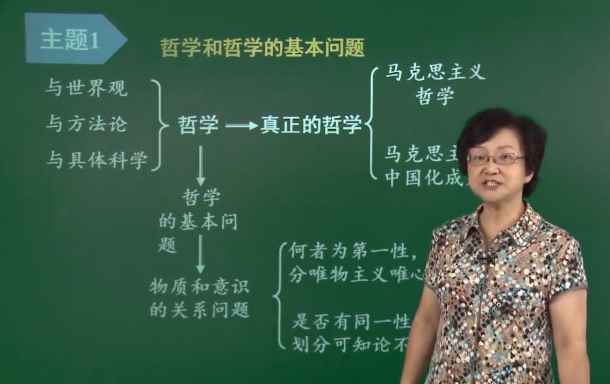 主题1
哲学和哲学的基本问题
与世界观
与方法论
与具体科学
哲学
真正的哲学
马克思主义
哲学
马克思主
中国化成
哲学
的基本问
题
物质和意识
的关系问题
何者为第一性，
分唯物主义唯心
是否有同一性
划分可知论不